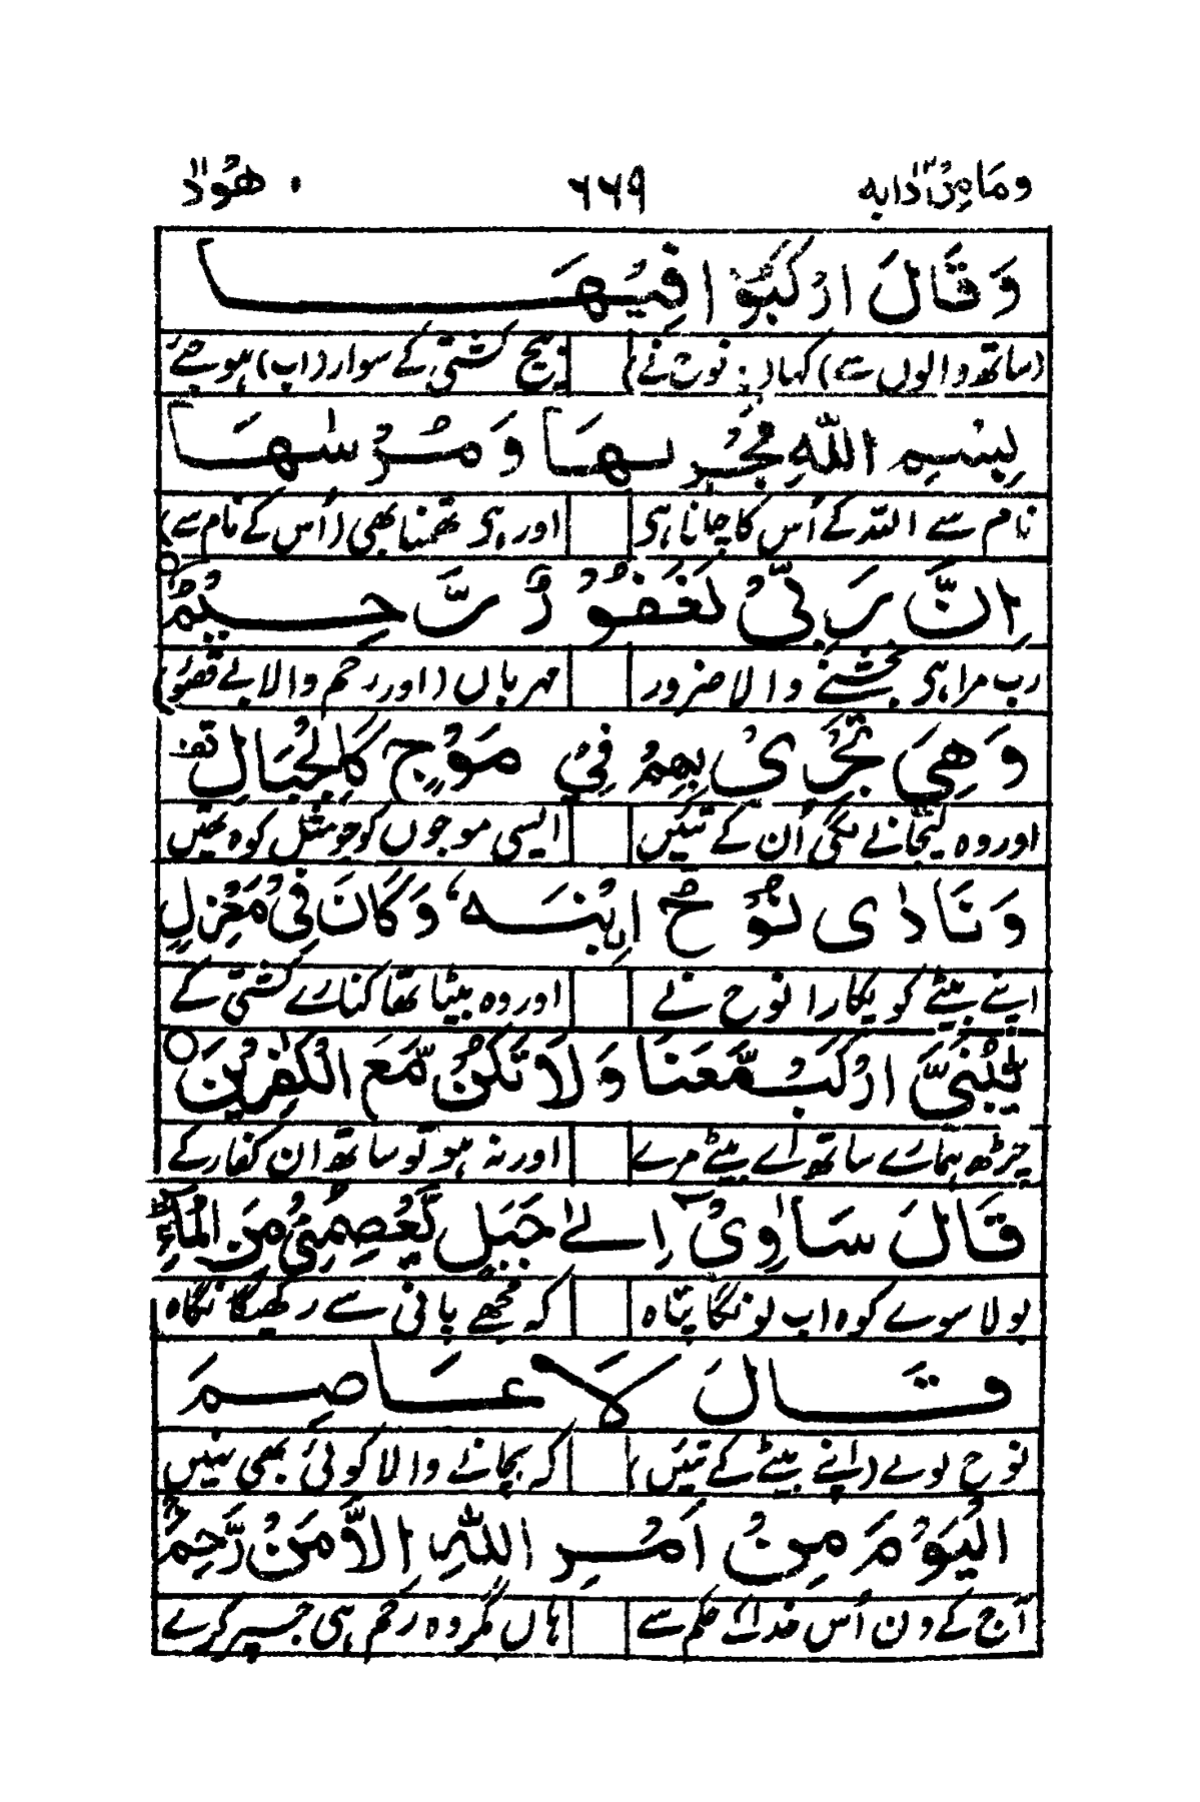 ومامن دابہ ۱۲ ۶۶۹ ھود ۱۱
وَقَالَ ارْكَبُوْا فِيْهَا
(ساتھ والوں سے) کہا (نوح نے) بیچ کشتی کے سوار (اب) ہو جئے
بِسْمِ اللّٰهِ مَجْرٖىهَا وَمُرْسٰىهَا
نام سے اللہ کے اُس کا چلنا ہی اور ہی تھمنا بھی (اُس کے نام سے)
اِنَّ رَبِّىْ لَغَفُوْرٌ رَّحِيْمٌ ○
رب مرا ہی بخشنے والا ضرور مہرباں (اور رحم والا بے قصور)
وَهِىَ تَجْرِىْ بِهِمْ فِىْ مَوْجٍ كَالْجِبَالِ
اور وہ لیجانے لگی اُن کے تئیں ایسی موجوں کو جو مثل کوہ تھیں
وَنَادٰى نُوْحُ ابْنَهٗ وَكَانَ فِىْ مَعْزِلٍ
اپنے بیٹے کو پکارا نوح نے اور وہ بیٹا تھا کنارے کشتی کے
يّٰبُنَىَّ ارْكَبْ مَّعَنَا وَلَا تَكُنْ مَّعَ الْكٰفِرِيْنَ ○
چڑھ ہمارے ساتھ اے بیٹے مرے اور نہ ہو تو ساتھ ان کفار کے
قَالَ سَاٰوِىْۤ اِلٰى جَبَلٍ يَّعْصِمُنِىْ مِنَ الْمَآءِ ط
بولا سوے کوہ اب لونگا پناہ کہ مجھے پانی سے رکھیگا نگاہ
قَالَ لَا عَاصِمَ
نوح بولے (اپنے بیٹے کے تئیں) کہ بچانے والا کوئی بھی نہیں
الْيَوْمَ مِنْ اَمْرِ اللّٰهِ اِلَّا مَنْ رَّحِمَ
آج کے دن اُس خدا کے حکم سے ہاں مگر وہ رحم ہی جسپر کرے